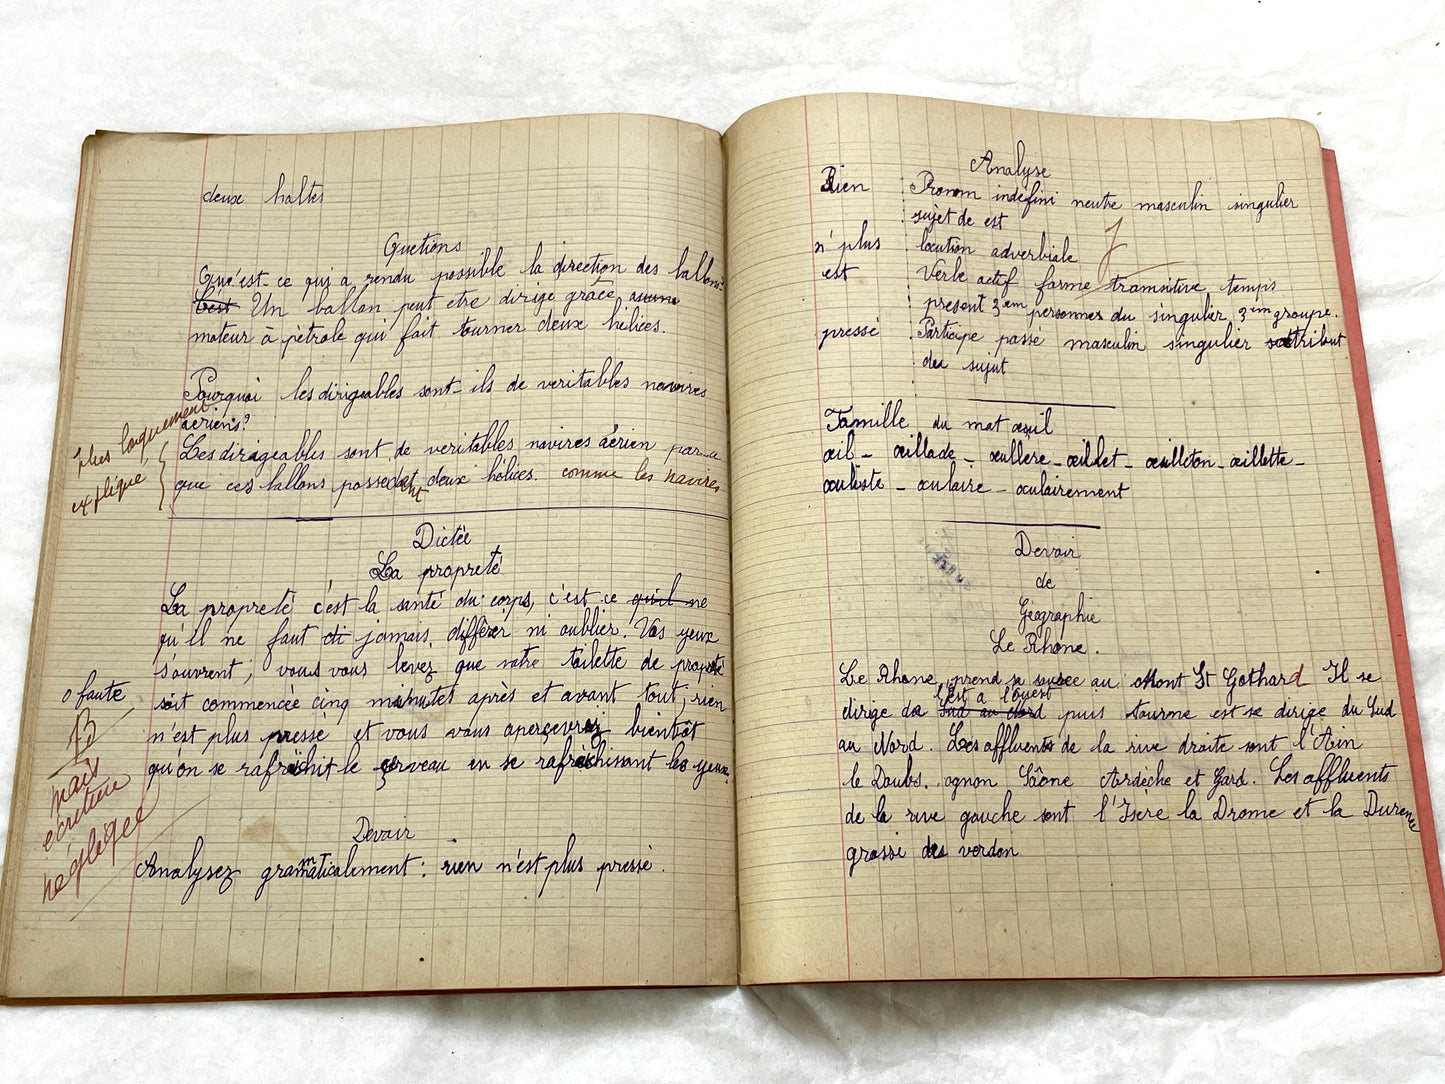 deux haltes
Quetions
Qu'est-ce qui a rendu possible la direction des ballons?
C'est Un ballon peut etre dirigé grâce
moteur à pétrole qui fait tourner deux hélices.
Pourquoi les dirigeables sont-ils de veritables navires
aeriens?
plus longuement
expliqué
Les dirigeables sont de veritables navires aérien par
que ces ballons possedent deux hélices. comme les navires
Dictée
La propreté
La propreté c'est la santé du corps, c'est ce qu'il ne
qu'il ne faut di jamais différer ni oublier. Vos yeux
s'ouvrent; vous vous levez que votre toilette de propreté
0 faute
soit commencée cinq minutes après et avant tout; rien
B
n'est plus pressé et vous vous apercevrez bientôt
qu'on se rafraîchit le cerveau en se rafraîchissant les yeux.
mais
écriture
négligée
Devoir
Analysez grammaticalement: rien n'est plus pressé.
Analyse
Rien Pronom indéfini neutre masculin singulier
sujet de est
n' plus locution adverbiale
est Verbe actif forme transitive temps
present 3em personnes du singulier 3em groupe.
pressé Participe passé masculin singulier attribut
du sujet
Famille du mot œuil
œil - œillade - œullère - œillet - œuilleton - œillette -
oculiste - oculaire - oculairement
Devoir
de
Géographie
Le Rhône.
Le Rhône, prend sa source au Mont St Gothard Il se
l'Est a l'ouest
dirige de Sud au Nord puis tourne est se dirige du Sud
au Nord. Les affluents de la rive droite sont l'Ain
le Doubs. ognon Saône Ardèche et Gard. Les affluents
de la rive gauche sont l'Isère la Drome et la Durence
grossi des verdon